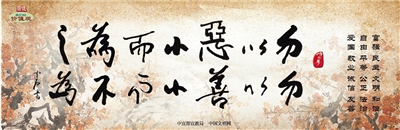 富强 民主 文明 和谐
自由 平等 公正 法治
爱国 敬业 诚信 友善
勿以惡小而為之
勿以善小而不為
价值观
中宣部宣教局 中国文明网